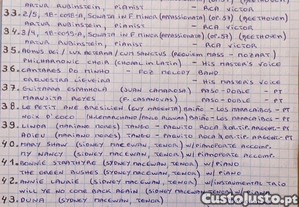 ARTUR RUBINSTEIN, PIANIST - RCA VICTOR
33. 2/3, 18-0095A, SONATA IN F MINOR (APPASSIONATA) (OP.57) (BEETHOVEN)
ARTUR RUBINSTEIN, PIANIST - RCA VICTOR
34. 3/4, 18- SONATA IN F MINOR (APPASSIONATA) (OP.57) (BEETHOVEN)
ARTUR RUBINSTEIN, PIANIST - RCA VICTOR
35. AGNUS DEI / LUX AETERNA / CUM SANCTUS (REQUIEM MASS - MOZART)
PHILHARMONIC CHOIR (CHORAL IN LATIN) - HIS MASTER'S VOICE
36. CANTARES DO MINHO - POR MELCOY BAND
- HIS MASTER'S VOICE
37. GUITARRA ESPANHOLA (JUAN CAMAROSA) PASO-DOBLE - PT
MANOLITA REYES (F. CASANOVAS) PASO-DOBLE - PT
38. LE PETIT ÂNE BRÉSILIEN (GUY MARENTA) BAIÃO - LOS MARACAIBOS - PT
NOIX D'COCO BAIÃO - LOS MARACAIBOS - PT
39. LINDA (MARIANO MORES) TANGO - PAQUITO ROCA
ADIEU (MARIANO MORES) TANGO - PAQUITO ROCA - PT
40. MARY SHAW (SIDNEY MACEWAN, TENOR) W/PIANOFORTE ACCOMP.
MY NANCY (SIDNEY MACEWAN, TENOR) W/PIANOFORTE ACCOMP.
41. BONNIE STRATHYRE (SYDNEY MACEWAN, TENOR) W/PIANO
THE GREEN BUSHES (SYDNEY MACEWAN, TENOR) W/PIANO
42. ANNIE LAURIE (SIDNEY MACEWAN, TENOR) W/INSTRUMENTAL TRIO
WILL YE NO COME BACK AGAIN (SIDNEY MACEWAN, TENOR)
43. DUNA (SYDNEY MACEWAN, TENOR)
CustoJusto.pt